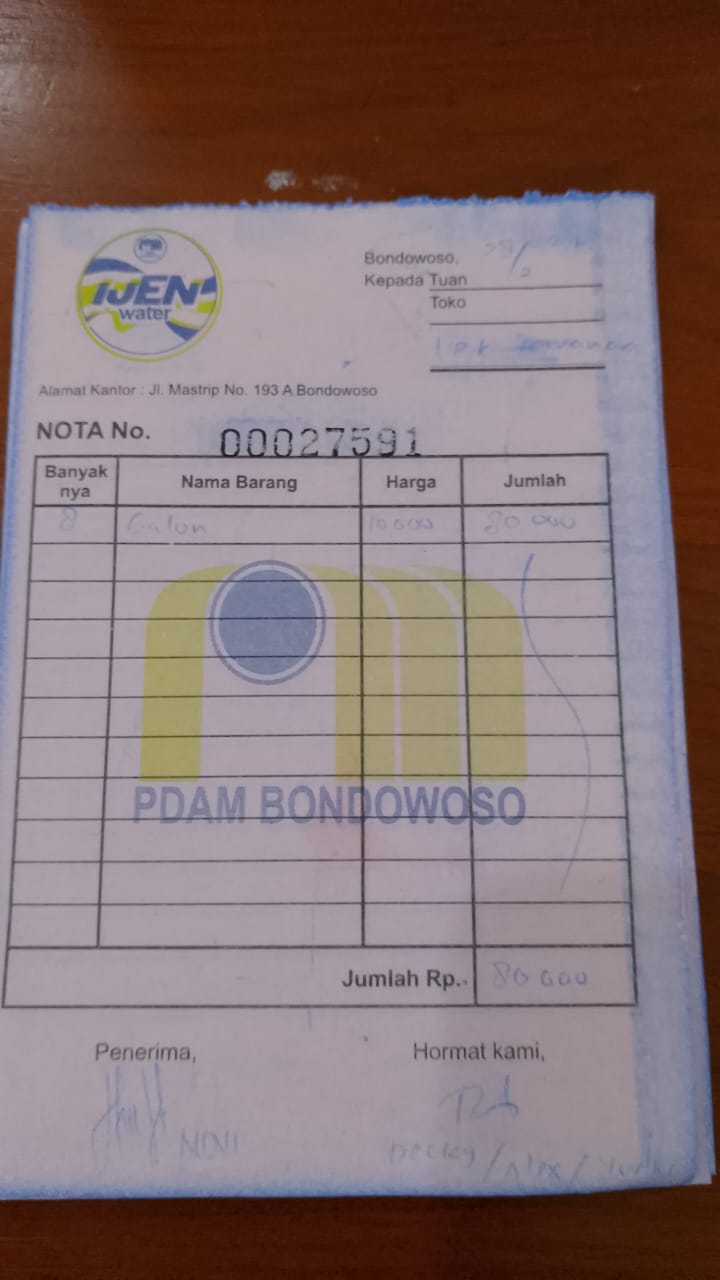 IJEN
water
Bondowoso, 28/2
Kepada Tuan
Toko
Alamat Kantor : Jl. Mastrip No. 193 A Bondowoso
NOTA No. 00027591
Banyak nya Nama Barang Harga Jumlah
8 Galon 10 000 80 000
PDAM BONDOWOSO
Jumlah Rp. 80 000
Penerima, Hormat kami,
NOVI